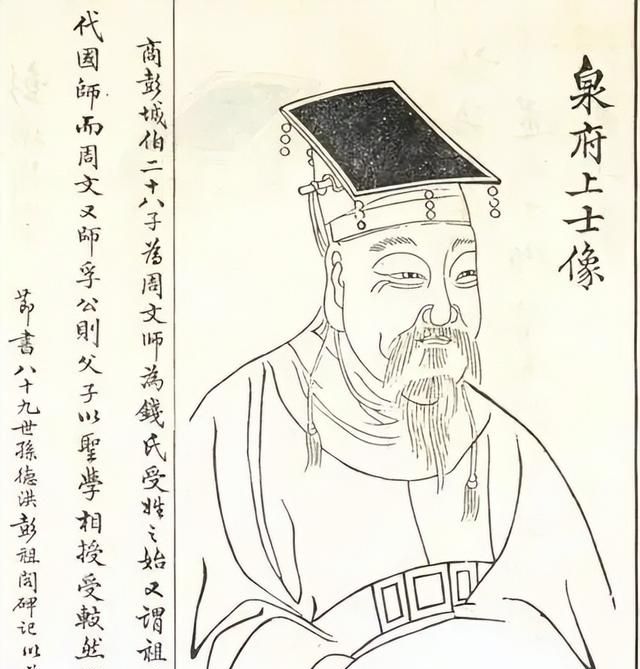 泉府上士像
商彭城伯二十八子為周文師為錢氏受姓之始又謂祖
代國師而周文又師孚公則父子以聖學相授受較然
節書八十九世孫德洪彭祖閣碑記以